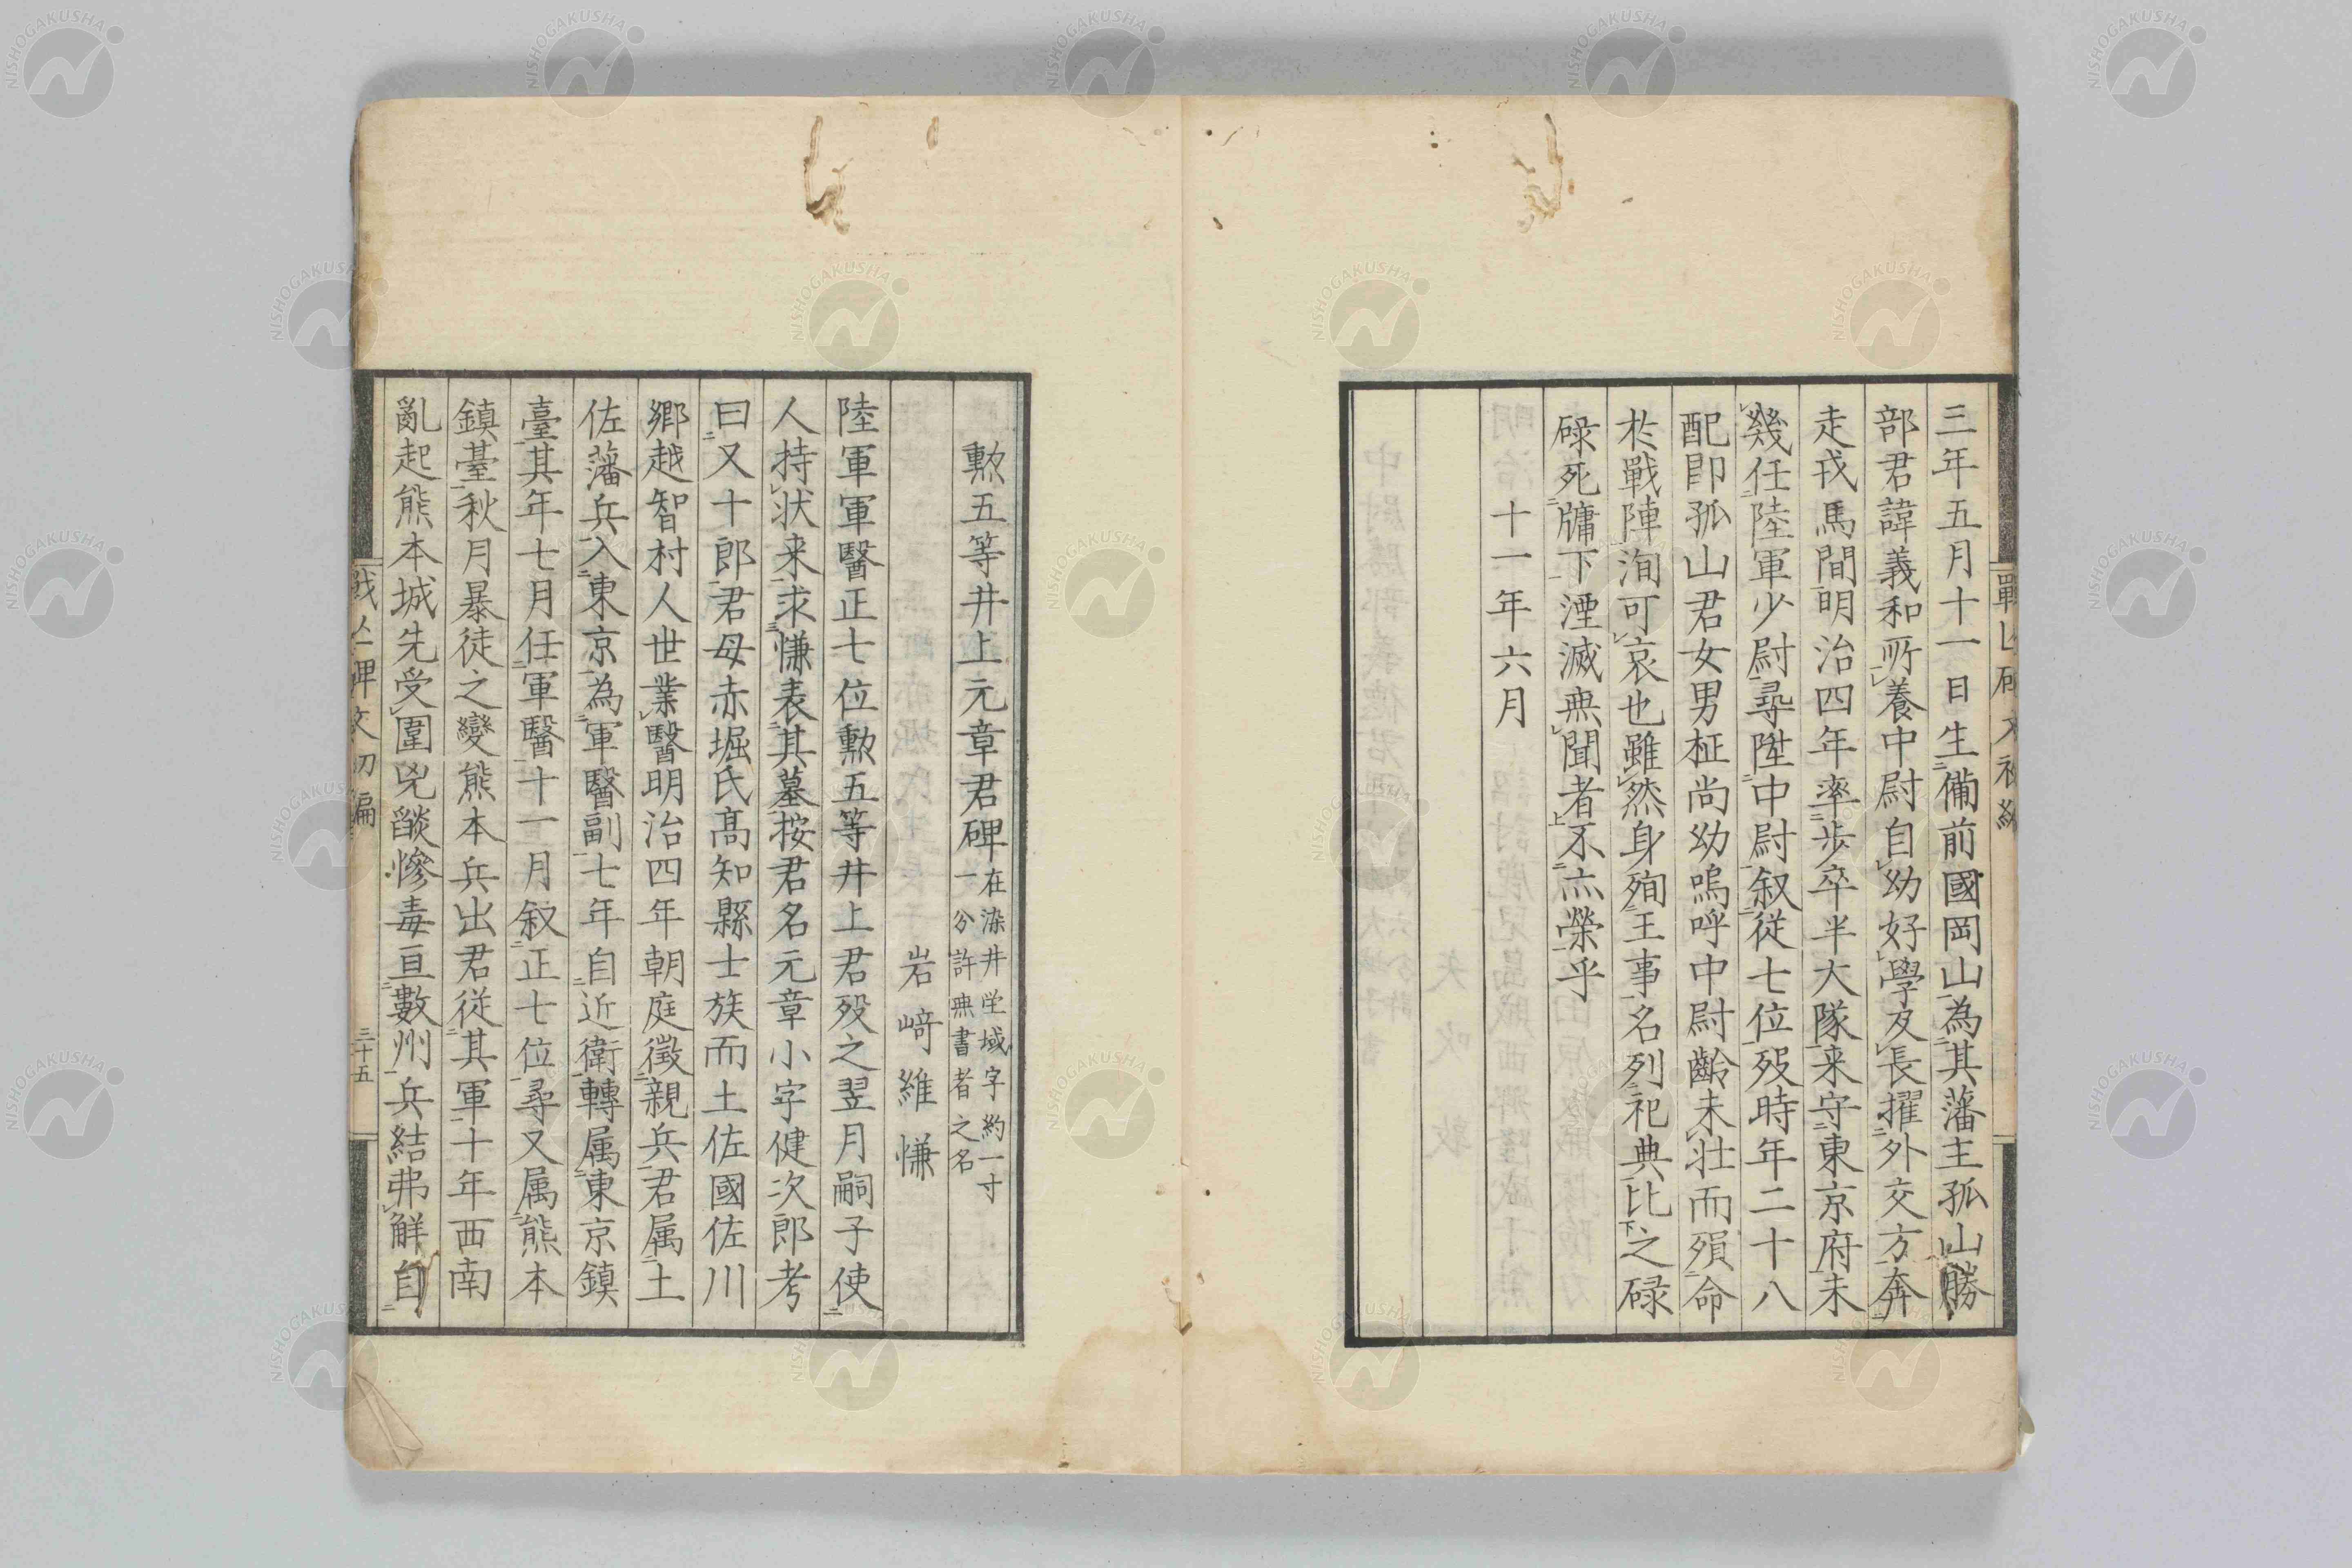 三年五月十一日生備前國岡山為其藩主孤山勝
部君諱義和所養中尉自幼好學及長擢外交方奔
走戎馬間明治四年率歩卒半大隊来守東京府未
幾任陸軍少尉尋陞中尉叙從七位歿時年二十八
配即孤山君女男柾尚幼嗚呼中尉齡未壮而殞命
於戰陣洵可哀也雖然身殉王事名列祀典比之碌
碌死牖下湮滅無聞者不亦榮乎
十一年六月
勲五等井上元章君碑 在染井塋域字約一寸
一分許無書者之名
岩﨑維慊
陸軍軍醫正七位勲五等井上君歿之翌月嗣子使
人持状来求慊表其墓按君名元章小字健次郎考
曰又十郎君母赤堀氏髙知縣士族而土佐國佐川
鄉越智村人世業醫明治四年朝庭徴親兵君属土
佐藩兵入東京為軍醫副七年自近衛轉属東京鎮
臺其年七月任軍醫十一月叙正七位尋又属熊本
鎮臺秋月暴徒之變熊本兵出君従其軍十年西南
亂起熊本城先受圍兇燄慘毒亘數州兵結弗解自
戰亡碑文初編
三十五
NISHOGAKUSHA